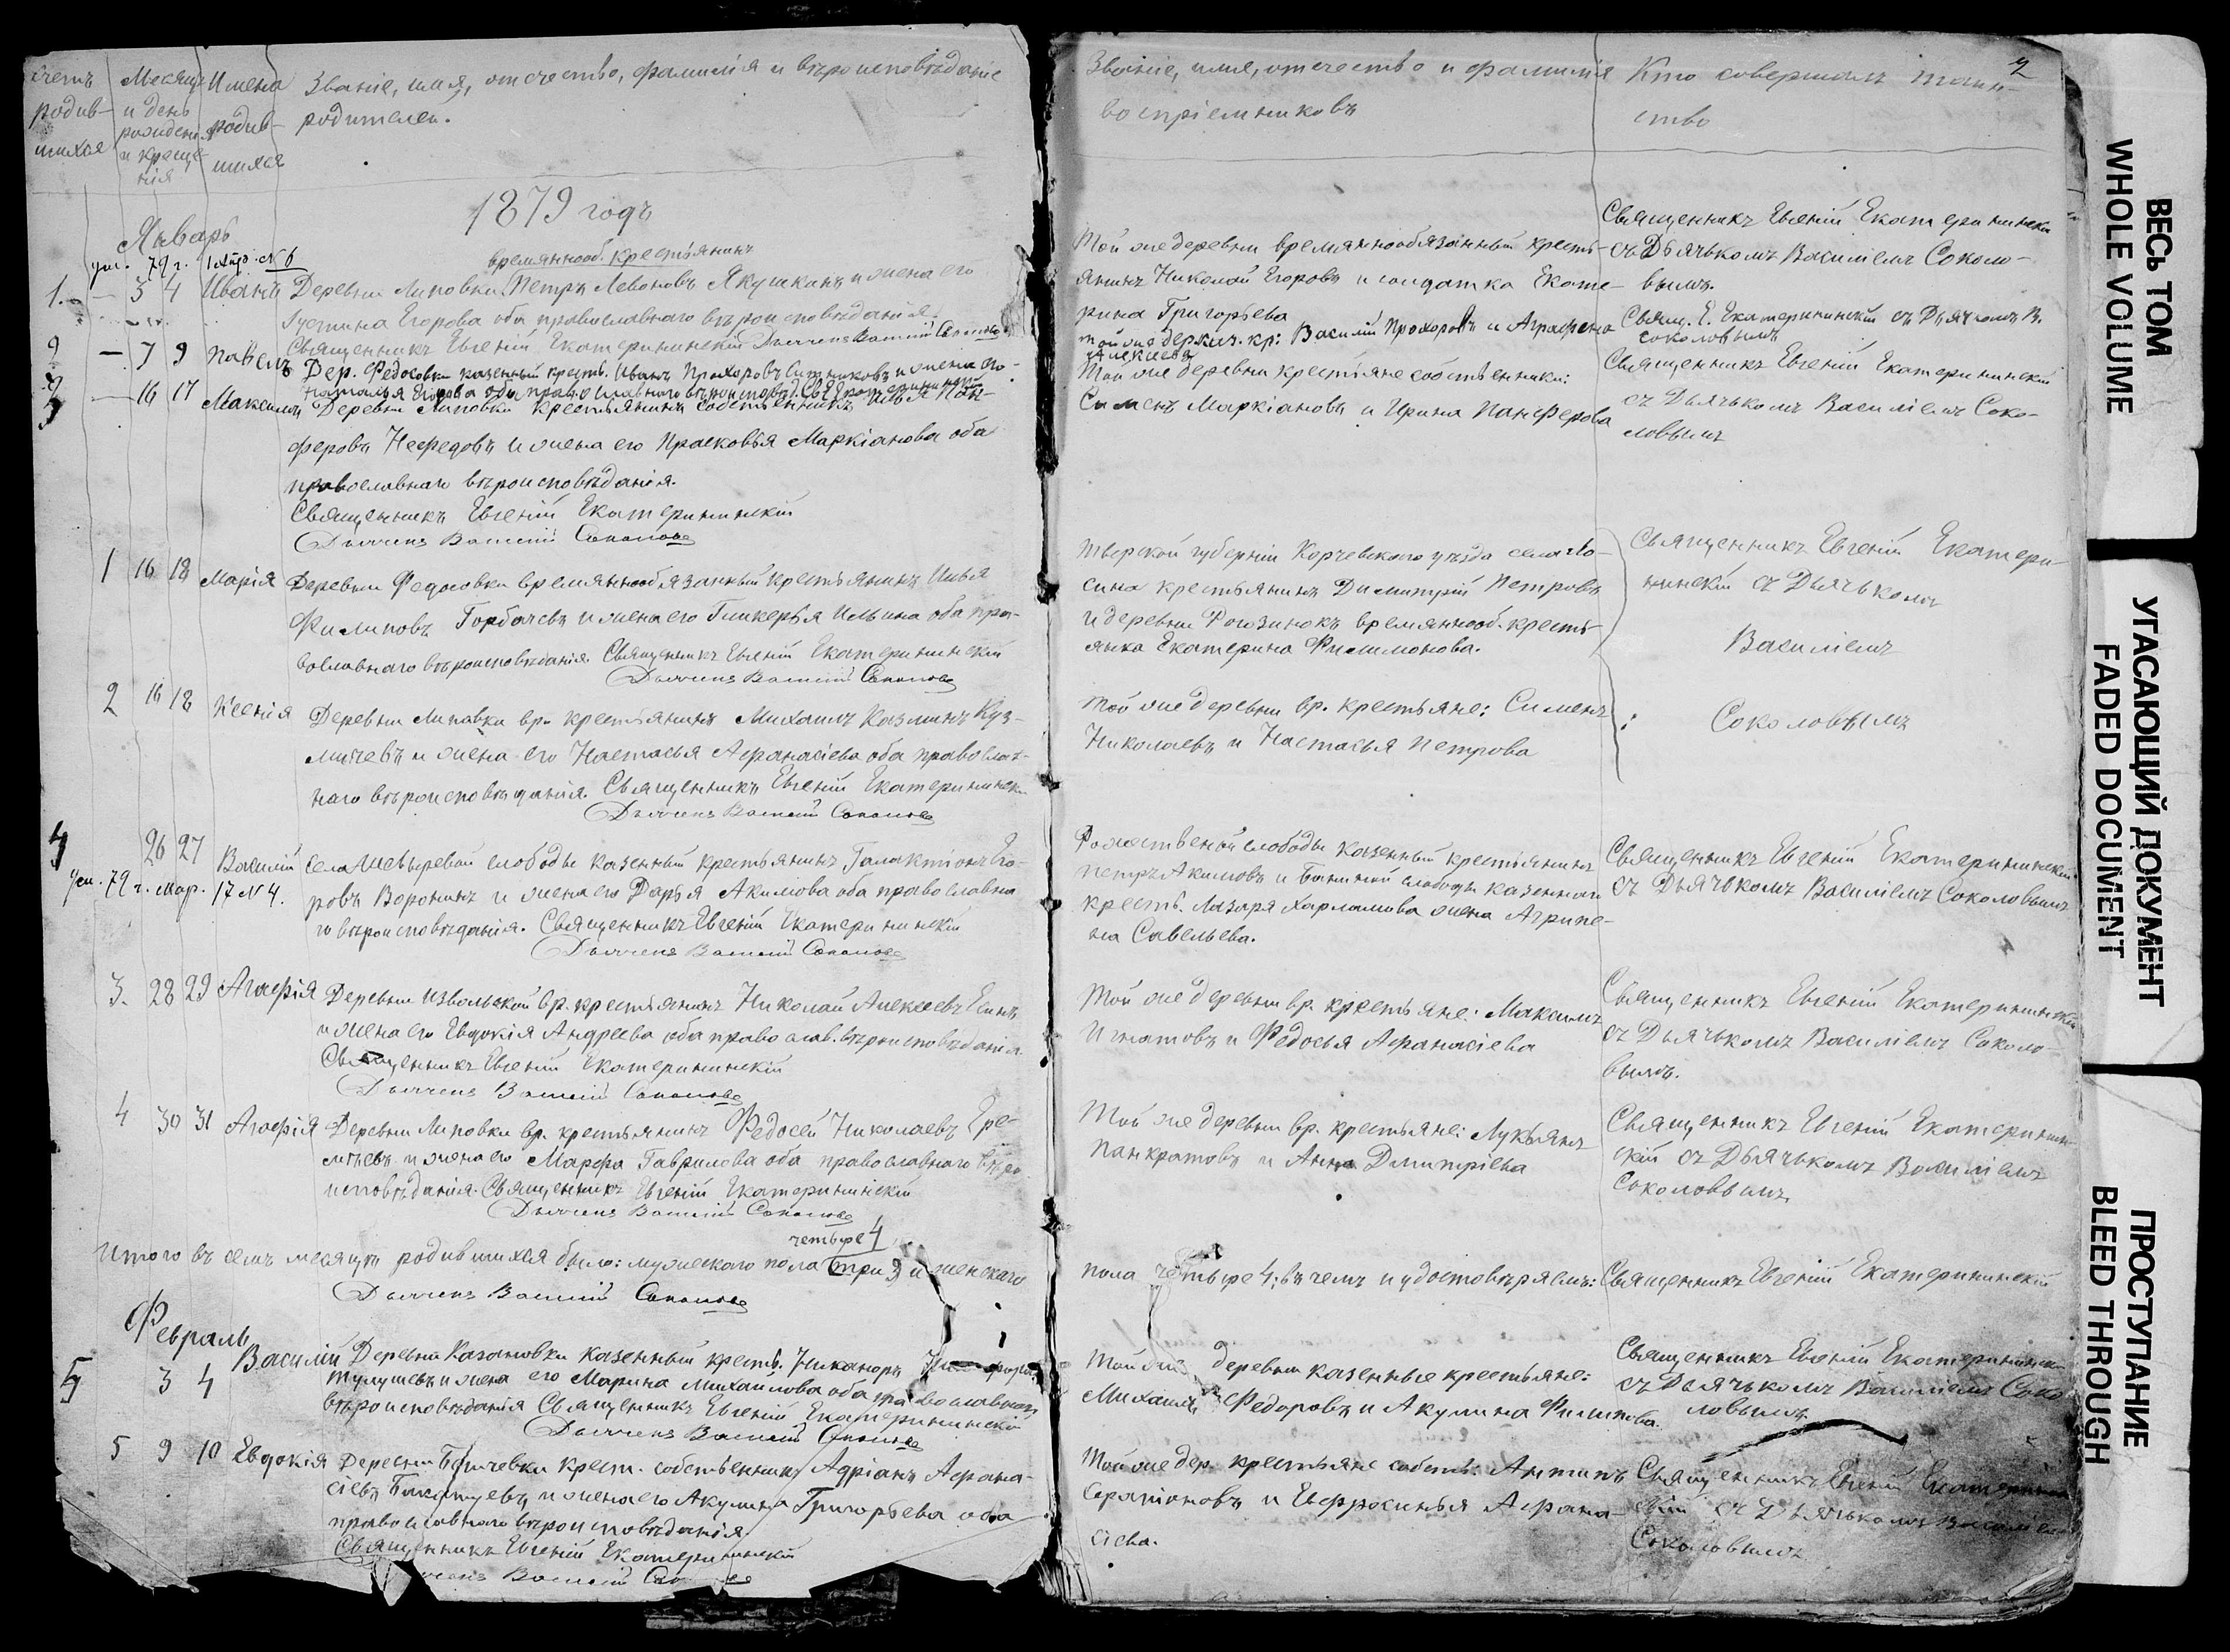 Счетъ родив-шихся
Месяцъ и день рожденія и крещенія
Имена родив-шихся
Званіе, имя, отчество, фамилія и вѣроисповѣданіе
родителей.
1879 годъ
Январь
ум. 79 г.
временнооб. крестьянинъ
1. — 3 4 Иванъ Деревни Липовки Петръ Левоновъ Якушкинъ и жена его
Устина Егорова оба православнаго вѣроисповѣданія.
Священникъ Евгеній Екатерининскій Дьячекъ Василій Соколовъ
2 — 7 9 Павелъ Дер. Федосовки казенный крест. Иванъ Прохоровъ Ситниковъ и жена его
Наталья Егорова оба православнаго вѣроисповѣд. Св. Е. Екатерининскій
3 — 16 17 Максимъ Деревни Липовки крестьянинъ собственникъ Илья Пан-
феровъ Нефедовъ и жена его Прасковья Маркіанова оба
православнаго вѣроисповѣданія.
Священникъ Евгеній Екатерининскій
Дьячекъ Василій Соколовъ
1 16 18 Марія Деревни Федосовки временнообязанный крестьянинъ Илья
Филиповъ Горбачевъ и жена его Гликерья Ильина оба пра-
вославнаго вѣроисповѣданія. Священникъ Евгеній Екатерининскій
Дьячекъ Василій Соколовъ
2 16 18 Ксенія Деревни Липовки вр. крестьянинъ Михаилъ Казминъ Куз-
мичевъ и жена его Настасья Афанасіева оба православ-
наго вѣроисповѣданія. Священникъ Евгеній Екатерининскій
Дьячекъ Василій Соколовъ
4 26 27 Василій села Шевыревой слободы казенный крестьянинъ Галактіонъ Его-
ум. 79 г. Мар. 17 № 4. ровъ Воронинъ и жена его Дарья Акимова оба православна
го вѣроисповѣданія. Священникъ Евгеній Екатерининскій
Дьячекъ Василій Соколовъ
3. 28 29 Агафія Деревни Извольской вр. крестьянинъ Николай Алексеевъ Есинъ
и жена его Евдокія Андреева оба православ. вѣроисповѣданія.
Священникъ Евгеній Екатерининскій
Дьячекъ Василій Соколовъ
4 30 31 Агафія Деревни Липовки вр. крестьянинъ Федосей Николаевъ Ере-
мѣевъ и жена его Марфа Гаврилова оба православнаго вѣро
исповѣданія. Священникъ Евгеній Екатерининскій
Дьячекъ Василій Соколовъ
четыре 4
Итого въ семъ месяцѣ родившихся было: мужескаго пола три 3 и женскаго
Дьячекъ Василій Соколовъ
Февраль
5 3 4 Василій Деревни Казановки казенный крест. Никаноръ
Тулушевъ и жена его Марина Михайлова оба православнаго
вѣроисповѣданія Священникъ Евгеній Екатерининскій
Дьячекъ Василій Соколовъ
5 9 10 Евдокія Деревни крест. собственникъ Адріанъ Афана-
сіевъ и жена его Акулина Григорьева оба
православнаго вѣроисповѣданія.
Священникъ Евгеній Екатерининскій
Василій
Званіе, имя, отчество и фамилія
воспріемниковъ
Кто совершалъ таин-
ство
2
Той же деревни временнообязанный кресть-
янинъ Николай Егоровъ и солдатка Екате-
рина Григорьева
Священникъ Евгеній Екатерининскій
съ Дьячькомъ Василіемъ Соколо-
вымъ.
той же дер. кр: Василій Прохоровъ и Аграфена
Алексиева
Свящ. Е. Екатерининскій съ Дьячкомъ В.
Соколовымъ
Той же деревни крестьяне собственники:
Сименъ Маркіановъ и Ирина Панферова
Священникъ Евгеній Екатерининскій
съ Дьячькомъ Василіемъ Соко-
ловымъ
Тверской губерніи Корчевского уѣзда села
сина крестьянинъ Димитрій Петровъ
и деревни Рогозинокъ временнооб. кресть-
янка Екатерина Филимонова.
Священникъ Евгеній Екатери-
нинскій съ Дьячькомъ
Василіемъ
Той же деревни вр. крестьяне: Сименъ
Николаевъ и Настасья Петрова
Соколовымъ
Рожественой слободы казенный крестьянинъ
Петръ Акимовъ и слободы казеннаго
крест. Лазаря Харламова жена Агрипе-
на Савельева.
Священникъ Евгеній Екатерининскій
съ Дьячькомъ Василіемъ Соколовымъ
Той же деревни вр. крестьяне: Максимъ
Игнатовъ и Федосья Афанасіева
Священникъ Евгеній Екатерининскій
съ Дьячькомъ Василіемъ Соколо-
вымъ.
Той же деревни вр. крестьяне: Лукьянъ
Панкратовъ и Анна Дмитріева
Священникъ Евгеній Екатеринин-
скій съ Дьячькомъ Василіемъ
Соколовымъ
пола четыре 4, въ чемъ и удостовѣряемъ: Священникъ Евгеній Екатерининскій
Той же деревни казенные крестьяне:
Михаилъ Федоровъ и Акулина Филипова.
Священникъ Евгеній Екатерининскій
съ Дьячькомъ Василіемъ Соко
ловымъ.
Той же дер. крестьяне собств. Антипъ
Серапіоновъ и Евфросинья Афана-
сіева.
Священникъ Евгеній Екатеринин
скій съ Дьячькомъ Василіемъ
Соколовымъ
ВЕСЬ ТОМ
WHOLE VOLUME
УГАСАЮЩИЙ ДОКУМЕНТ
FADED DOCUMENT
ПРОСТУПАНИЕ
BLEED THROUGH